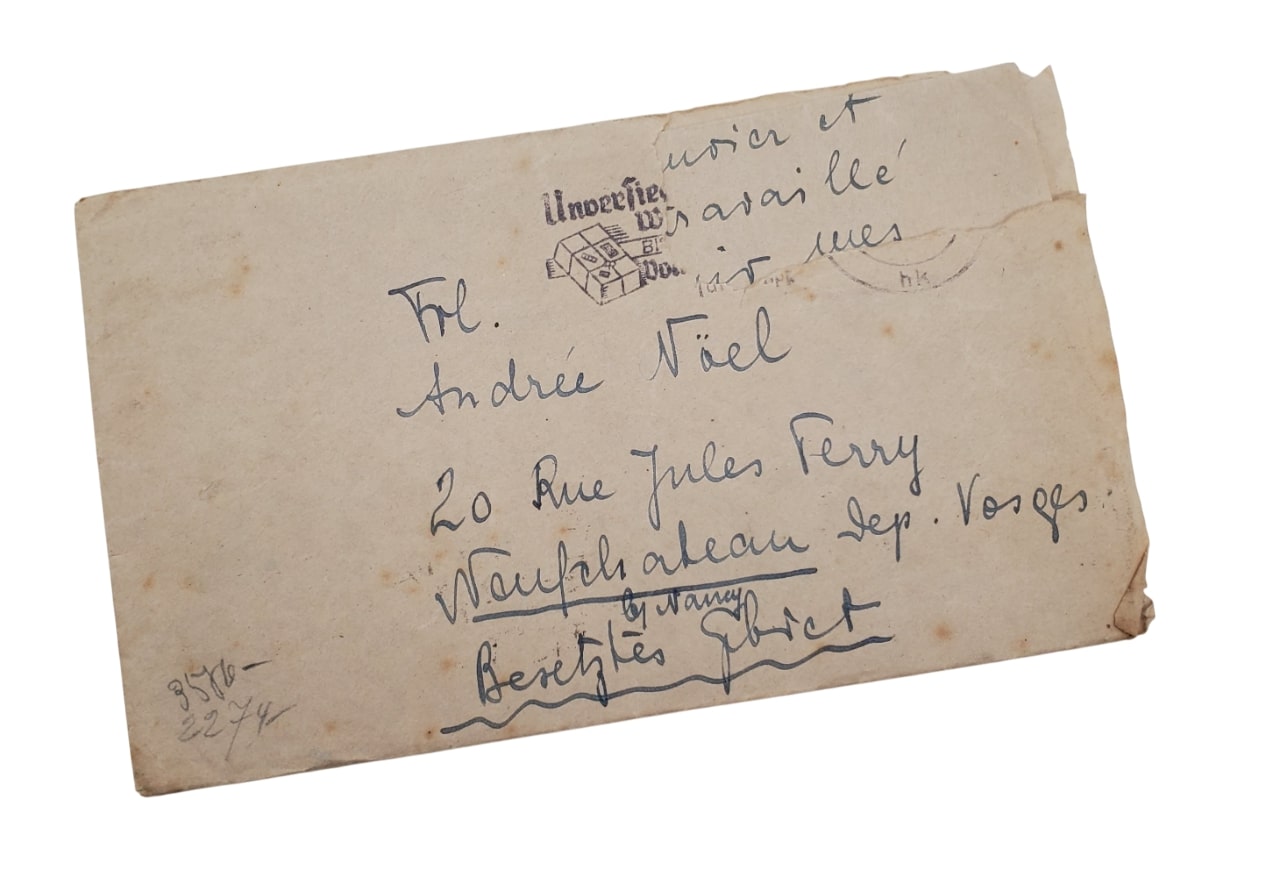 et
mes
Unversie
hk
Frl.
Andrée Nöel
20 Rue Jules Ferry
Neufchateau Dep. Vosges.
by Nancy
Besetztes Gebiet
3576-
2274-